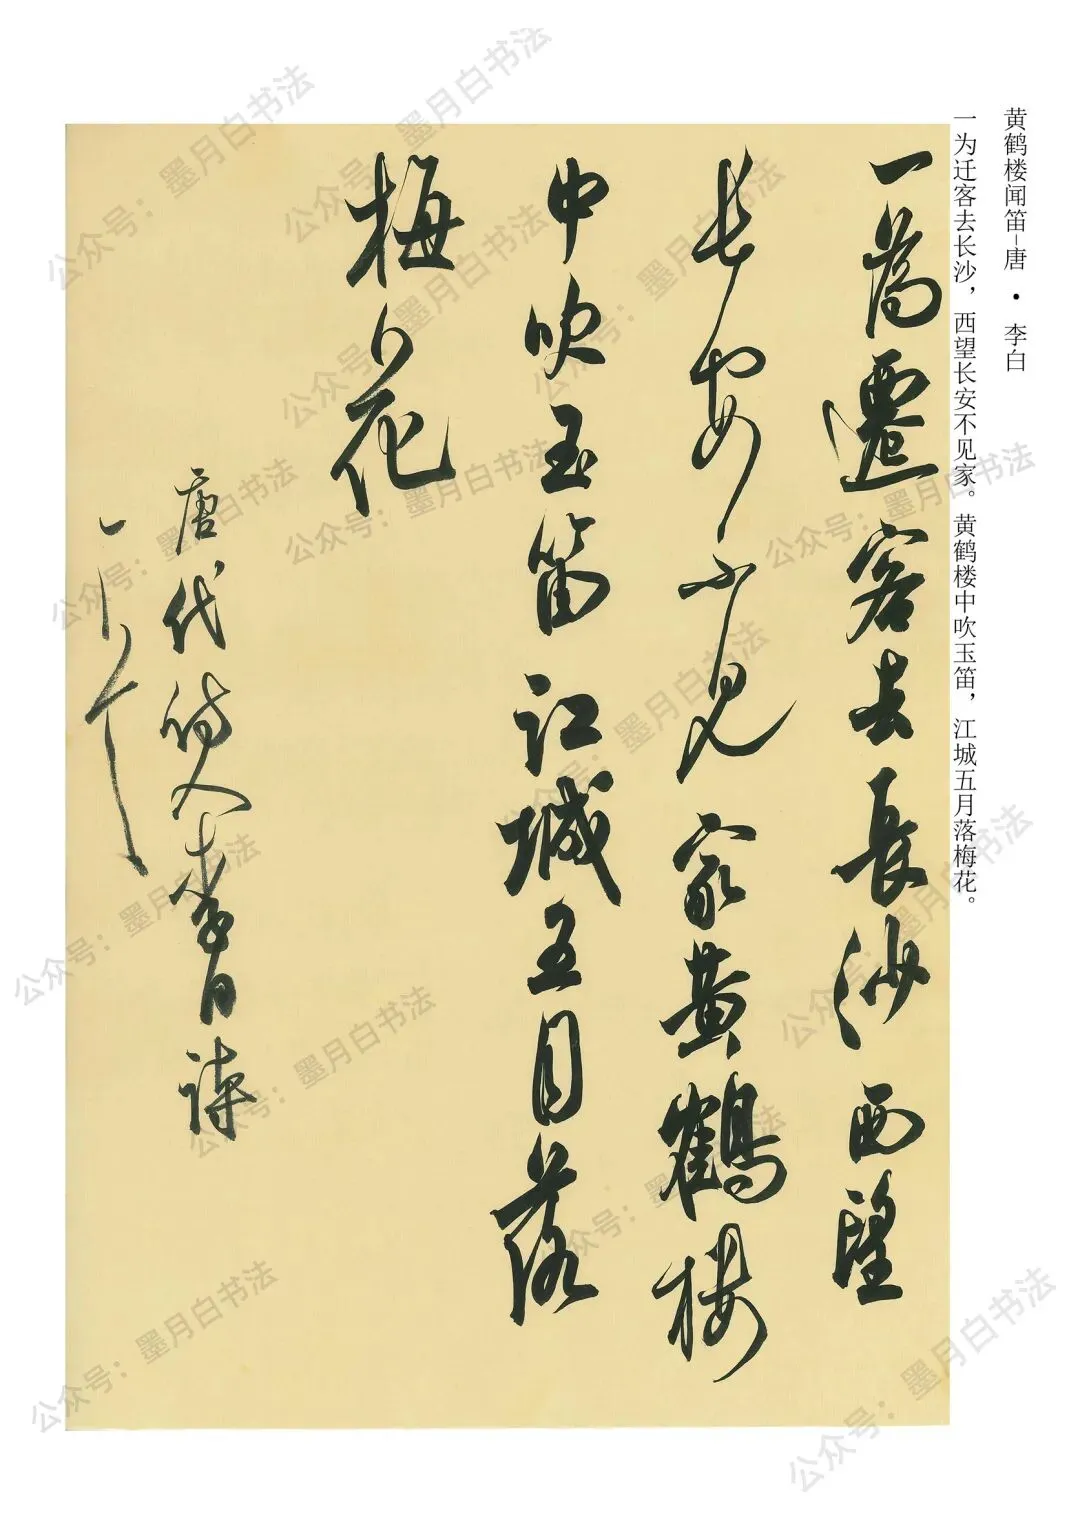 黄鹤楼闻笛-唐 • 李白
一为迁客去长沙，西望长安不见家。黄鹤楼中吹玉笛，江城五月落梅花。
一為遷客去長沙西望
長安不見家黄鶴楼
中吹玉笛江城五月落
梅花
唐代诗人李白詩
公众号：墨月白书法